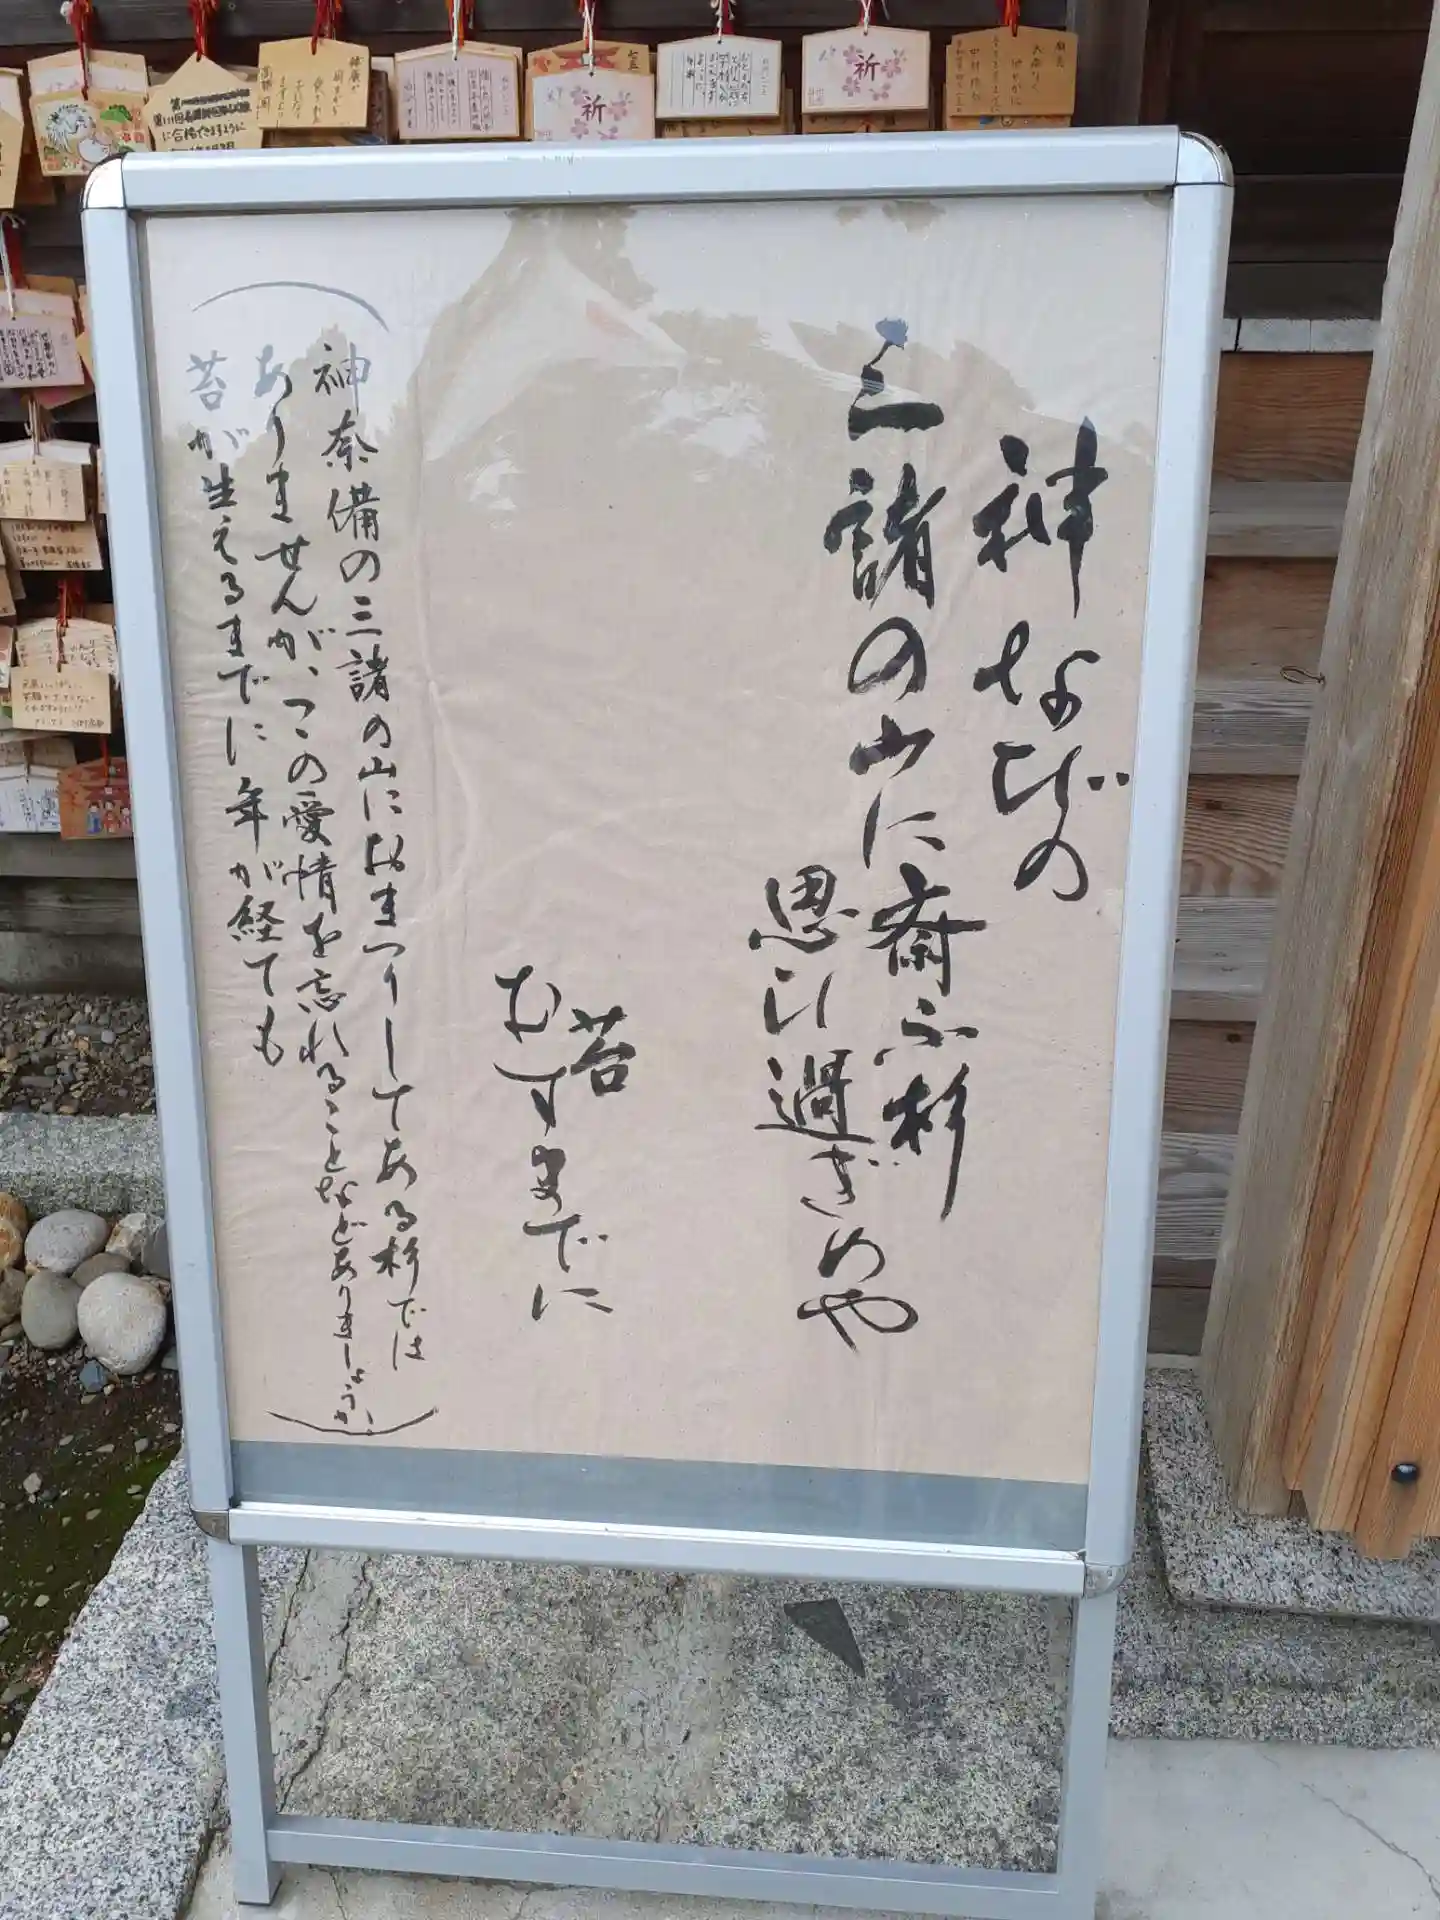 神なびの
三諸の山に斎ふ杉
思ひ過ぎめや
苔
むすまでに
神奈備の三諸の山におまつりしてある杉では
ありませんが、この愛情を忘れることなどありましょうか、
苔が生えるまでに年が経ても
祈
祈
に合格できますように